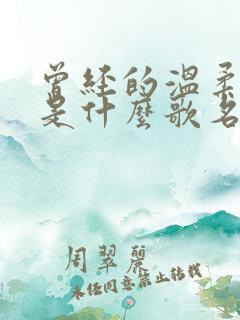 曾经的温柔
是什麼歌名
周翠麗
未经同意禁止转载